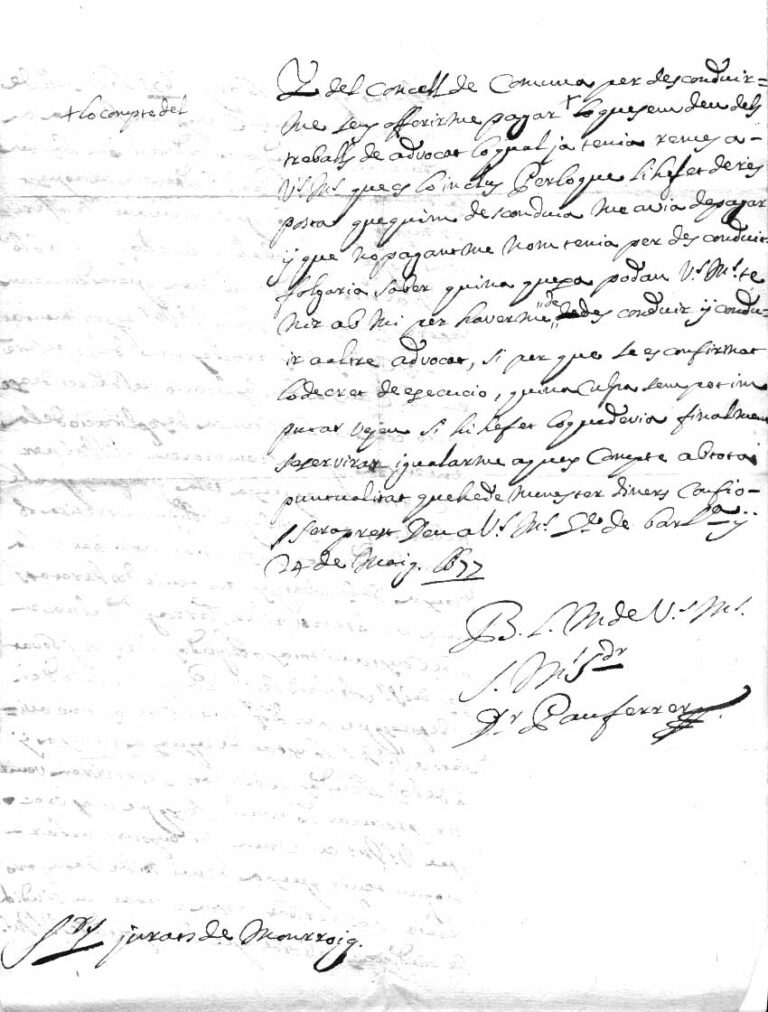 + lo compte del
Y del Concell de Comuna per desconduir=
me sens offerirme pagar + lo quesem deu dels
treballs de advocat lo qual ja tenia remes a
V.s M.s que es lo inclus Perloque li he fet de res
posta que quim desconduia me avia de pagar
y que no pagantme nom tenia per desconduit
folgaria saber quina quexa podan V.s M.s te
nir ab mi per haverme de desconduir y condu
ir a altre advocat, si per que se es confirmat
lo decret de execucio, quina Culpa sem pot im
putar vejen si hi he fet lo que devia finalment
se serviran igualarme aquex Compte ab tota
puntualitat que he de menester diners Confio
sera prest Deu a V.s M.s de Bar.na y
24 de Maig. 1677
B. L. M de V.s M.s
S. M.s S.dr
D.r Pau ferrer
S.rs jurats de Monrroig.